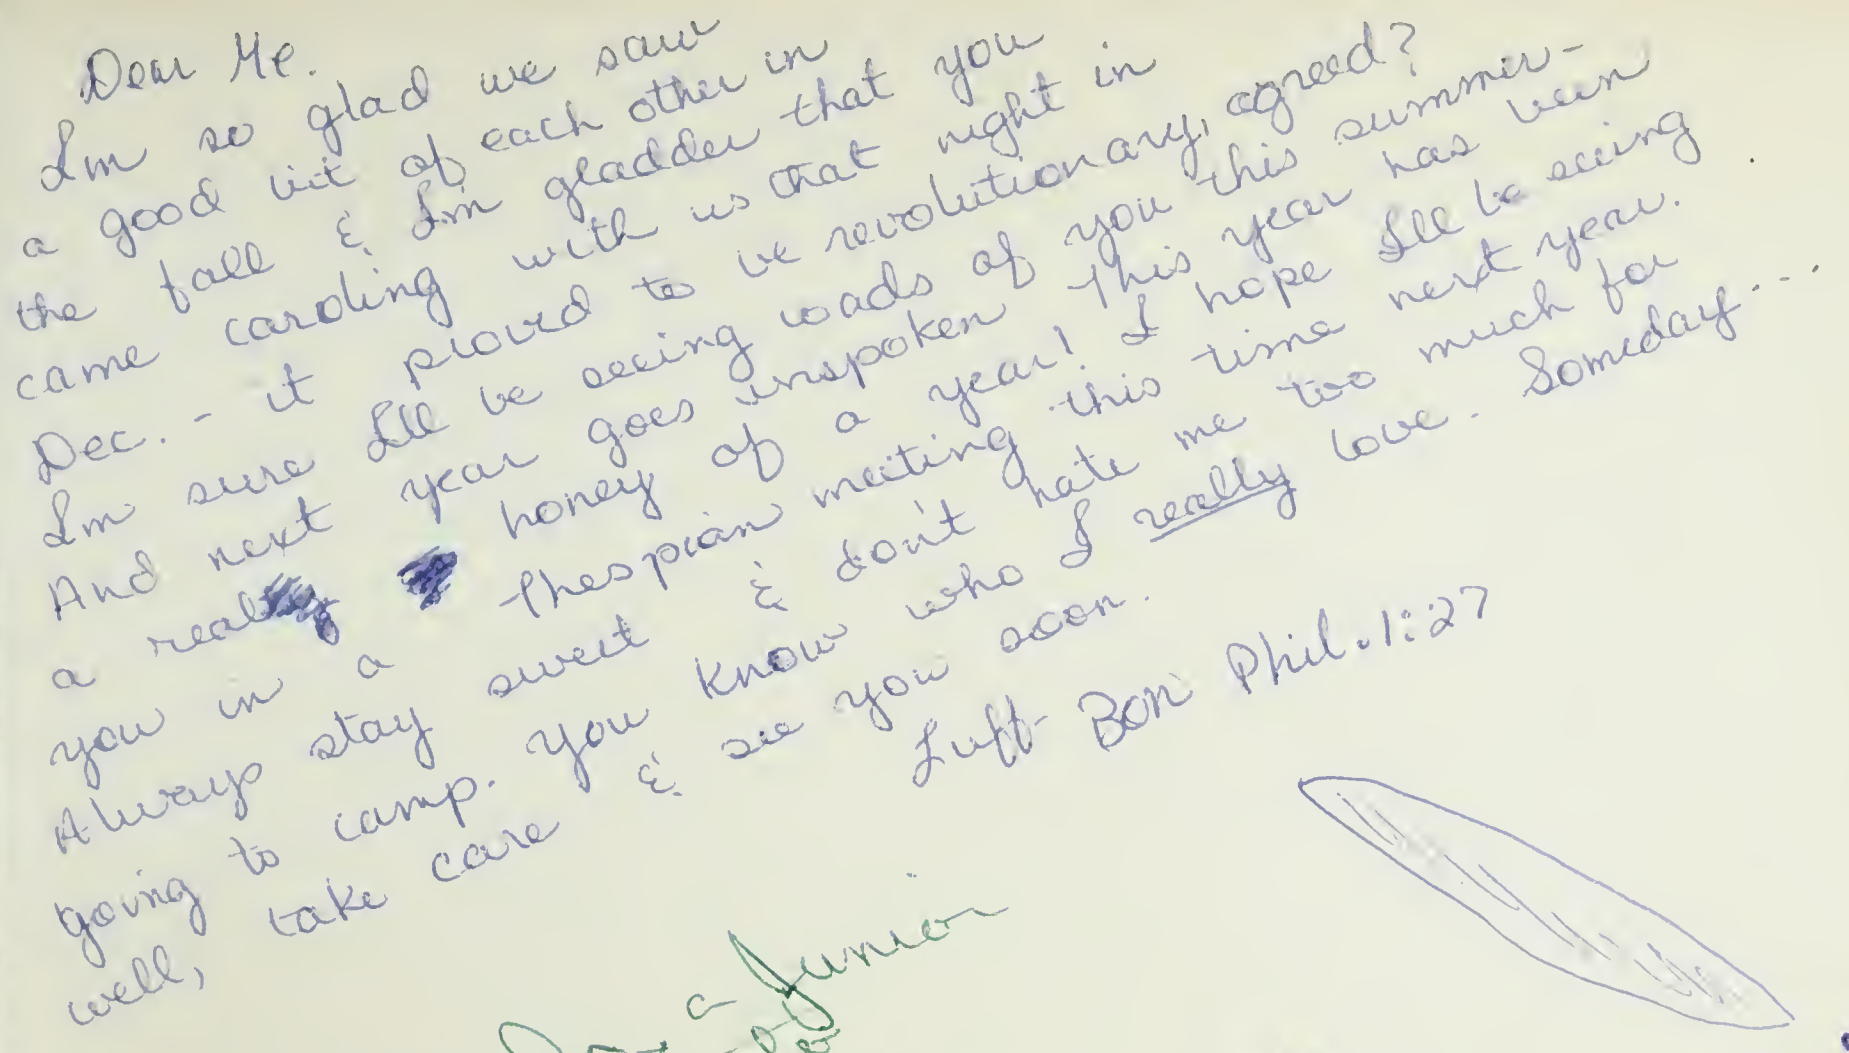 Dear Me.
I'm so glad we saw
a good bit of each other in
the fall & I'm gladder that you
came caroling with us that night in
Dec. - it proved to be revolutionary, agreed?
I'm sure I'll be seeing loads of you this summer -
And next year goes unspoken. This year has been
a real honey of a year! I hope I'll be seeing
you in a Thespian meeting this time next year.
Always stay sweet & don't hate me too much for
going to camp. You know who I really love. Someday...
well, take care & see you soon.
Luff Bon Phil. 1:27
a Junior